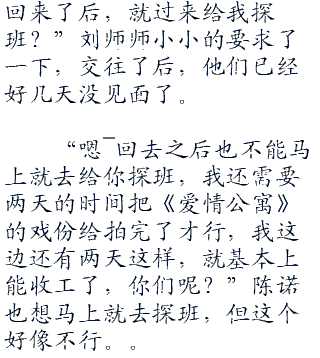 回来了后，就过来给我探
班？”刘师师小小的要求了
一下，交往了后，他们已经
好几天没见面了。
“嗯¯回去之后也不能马
上就去给你探班，我还需要
两天的时间把《爱情公寓》
的戏份给拍完了才行，我这
边还有两天这样，就基本上
能收工了，你们呢？”陈诺
也想马上就去探班，但这个
好像不行。。